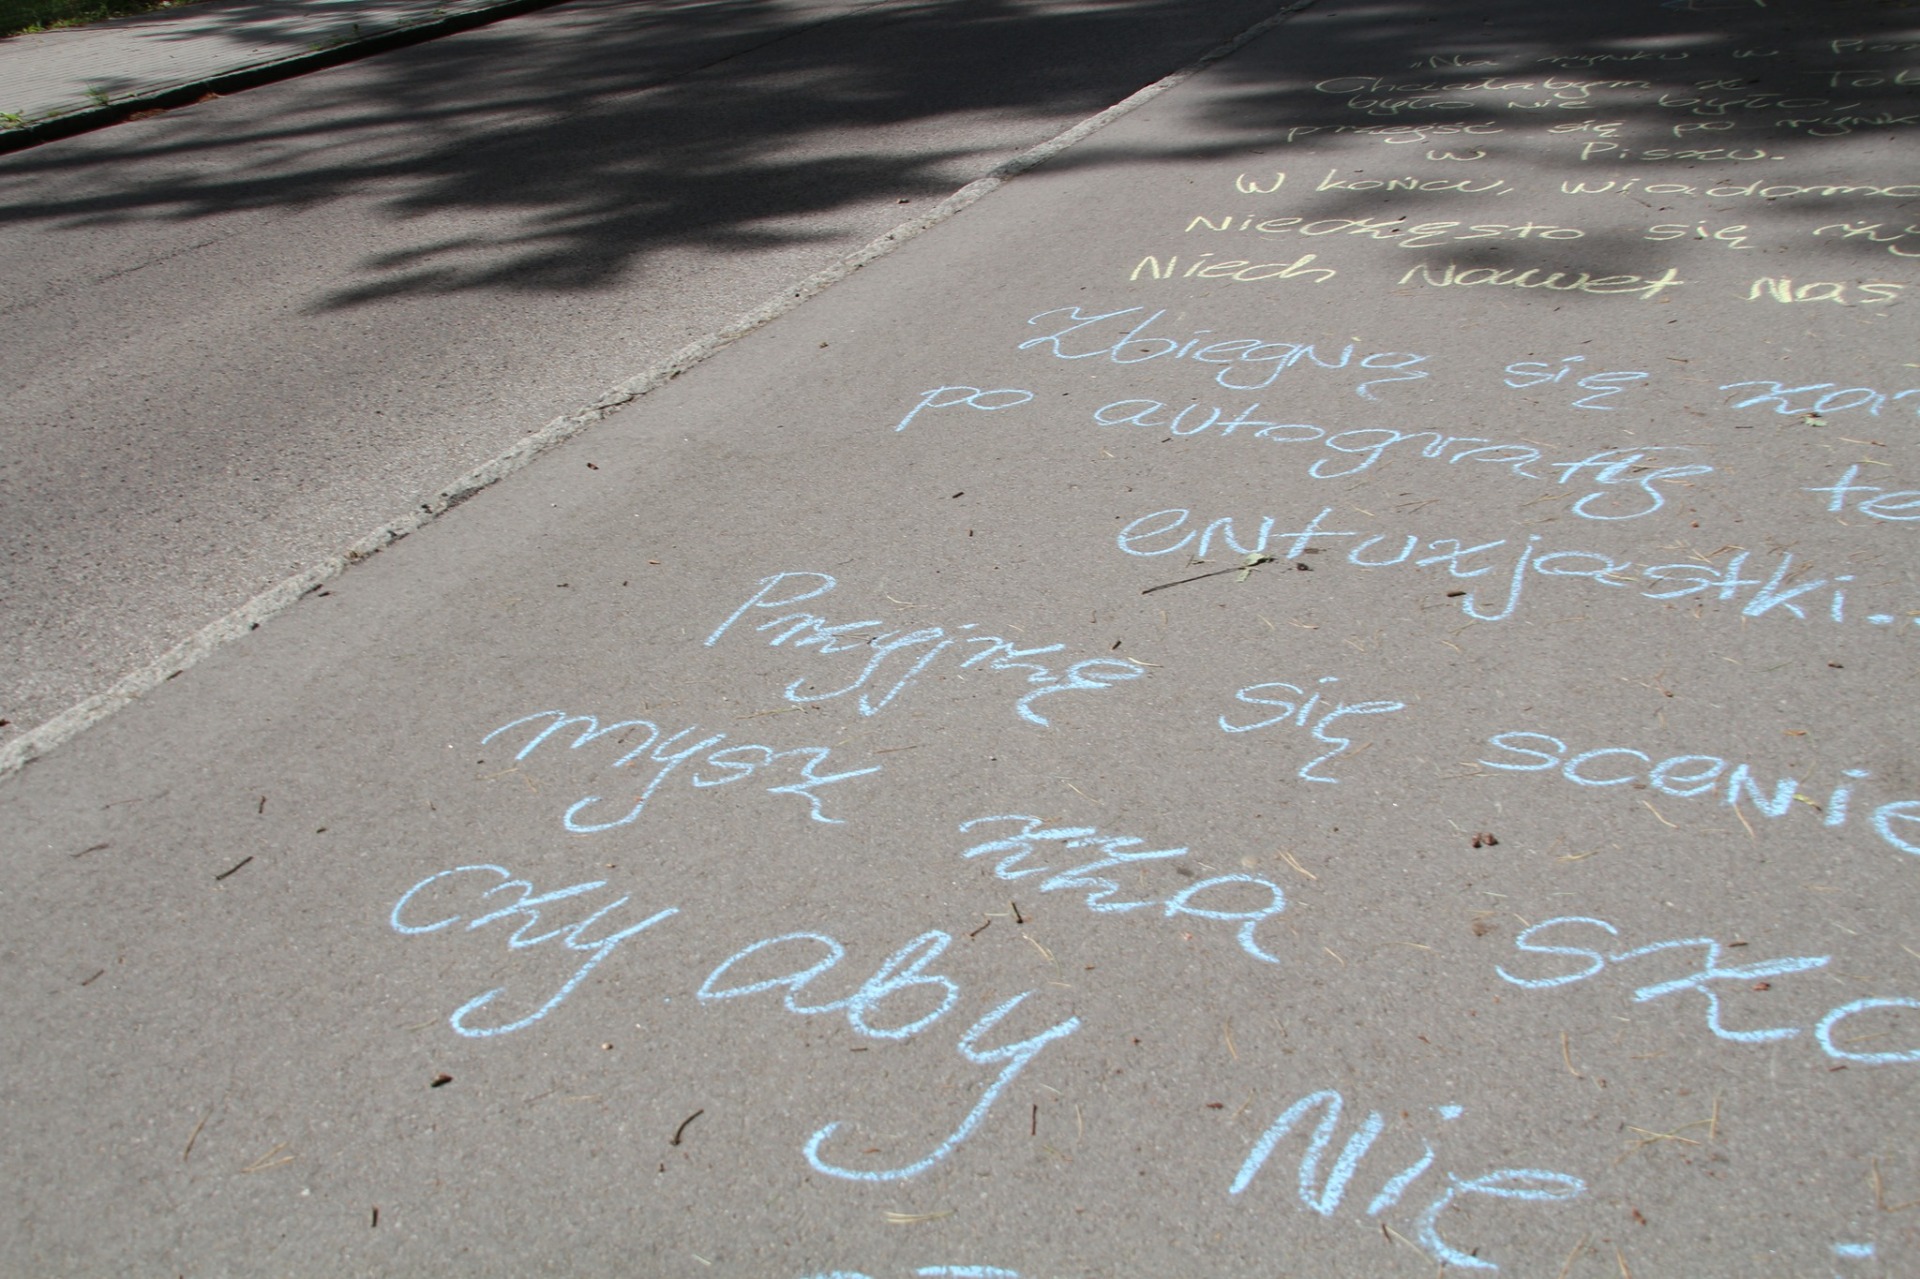 „Na rynku w Pisz
Chciałabym z Tob
było nie było,
przejść się po rynk
w Piszu.
W końcu, wiadomo
Nieczęsto się
Niech nawet nas
Zbiegną się zar
po autografię te
entuzjastki...
Przyjmę się scenie
mysz zza szo
czy aby nie